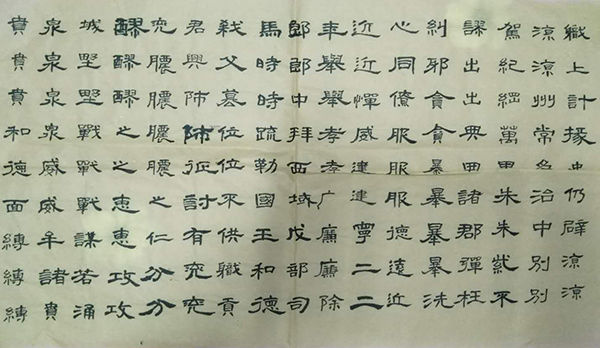 職上計掾史仍辟涼涼
涼涼州常為治中別別
駕紀綱萬里朱朱紫不
謬出出典典諸郡彈枉
糾邪貪貪暴暴暴暴洗
心同僚服服服德遠近
近近憚威建建寧二二
年舉舉孝孝广廉廉除
郎郎中拜西域戊部司
馬時時疏勒國王和德
弒父篡位位不供職貢
君興師師征討有兗兗
兗膿膿膿膿之仁分分
醪醪醪之之惠惠攻攻
城野野戰戰戰謀若涌
泉泉泉泉威威牟諸賁
賁賁賁和德面縛縛縛